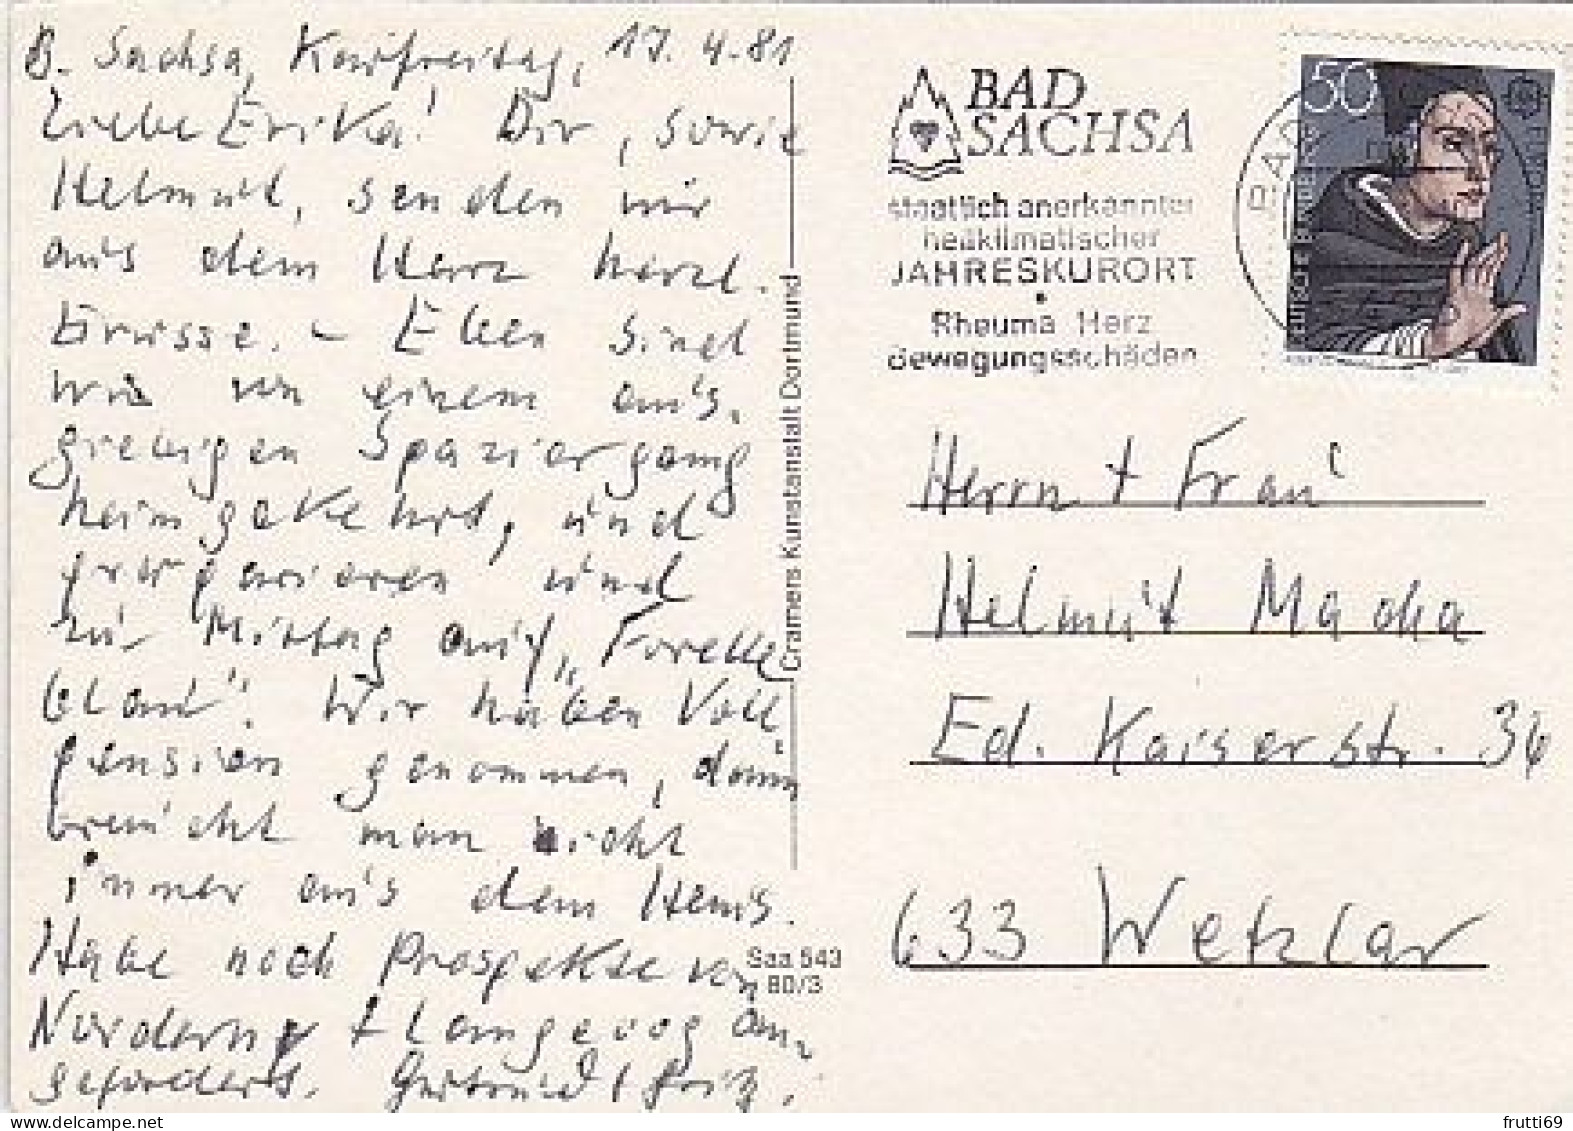 B. Sachsa, Karfreitag, 17.4.81
Liebe Erika! Dir, sowie
Helmut, senden wir
aus dem Harz herzl.
Grüsse. – Eben sind
wir von einem aus-
giebigen Spaziergang
heimgekehrt, und
präparieren und
zu Mittag auf „Forelle
blau". Wir haben Voll
pension genommen, dann
braucht man nicht
immer aus dem Haus.
Habe noch Prospekte von
Norderney + Langeoog an-
gefordert. Gertrud + Fritz.
Cramers Kunstanstalt Dortmund
Saa 543
80/3
BAD
SACHSA
staatlich anerkannter
heilklimatischer
JAHRESKURORT
Rheuma Herz
Bewegungsschäden
50
Herrn + Frau
Helmut Macha
Ed. Kaiserstr. 36
633 Wetzlar
frutti69